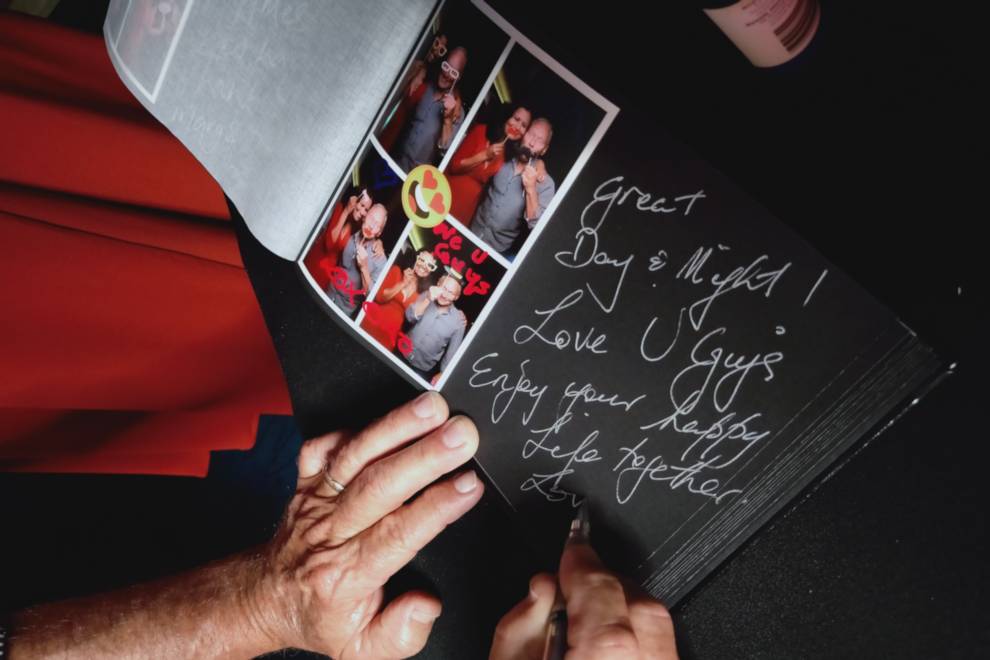 We U
Guys
Great
Day & Night !
Love U Guys
Enjoy your happy
Life together
Lov